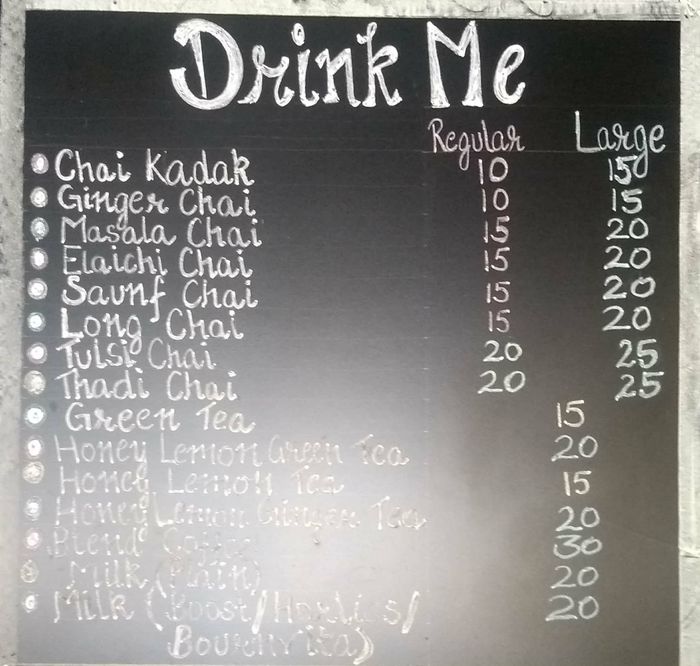 Drink Me
Regular Large
Chai Kadak 10 15
Ginger Chai 10 15
Masala Chai 15 20
Elaichi Chai 15 20
Saunf Chai 15 20
Long Chai 15 20
Tulsi Chai 20 25
Thadi Chai 20 25
Green Tea 15
Honey Lemon Green Tea 20
Honey Lemon Tea 15
Honey Lemon Ginger Tea 20
Blend Coffee 30
Milk (Plain) 20
Milk (Boost/Horlics/ 20
Bournvita)